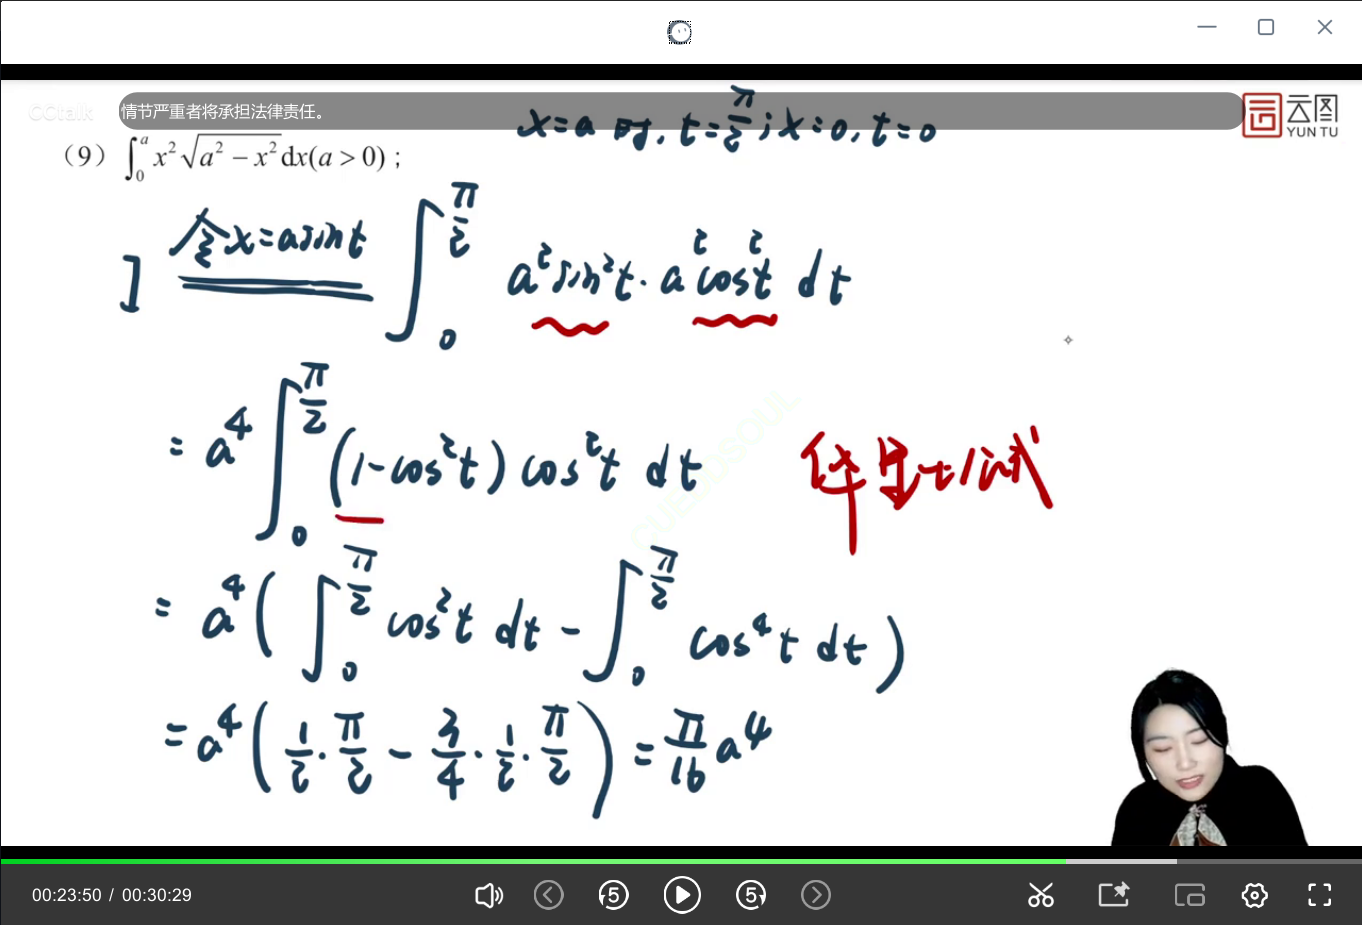 CCtalk
情节严重者将承担法律责任。
x=a 时, t=π/2; x=0, t=0
云图
YUN TU
（9）∫₀ᵃ x²√(a² − x²)dx(a > 0)；
I 令x=asint ∫₀^(π/2) a²sin²t·a²cos²t dt
= a⁴ ∫₀^(π/2) (1-cos²t) cos²t dt
华里士公式
= a⁴( ∫₀^(π/2) cos²t dt - ∫₀^(π/2) cos⁴t dt )
= a⁴( 1/2 · π/2 - 3/4 · 1/2 · π/2 ) = π/16 a⁴
00:23:50 / 00:30:29
5
5